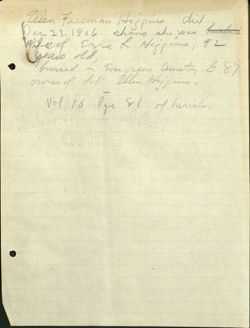 Ellen Freeman Higgins died
Dec 27, 1916 shows she was
Wife of Ezra L Higgins, 92
years old,
buried in Evergreen Cemetery 87
owner of lot Ellen Higgins.
Vol 16 Pge 81 of burials.
HAMMERMILL
BOND